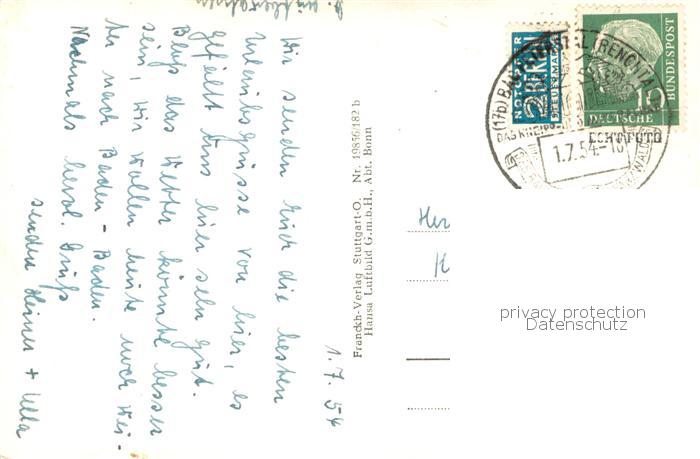 1. 7. 54
Wir senden Euch die besten
Urlaubsgrüsse von hier, es
gefällt uns hier sehr gut.
Bloß das Wetter könnte besser
sein, wir wollen heute noch wei-
ter nach Baden-Baden.
Nochmals herzl. Grüß
senden Heiner + Ulla
Franckh-Verlag Stuttgart-O. Nr. 19856/182 b
Hansa Luftbild G.m.b.H., Abt. Bonn
NOTOPFER
2 BERLIN
STEUERMARKE
DEUTSCHE
BUNDESPOST
15
(17b) BAD
(RENCHTAL)
1.7.54.-18
ECHT FOTO
Her
privacy protection
Datenschutz